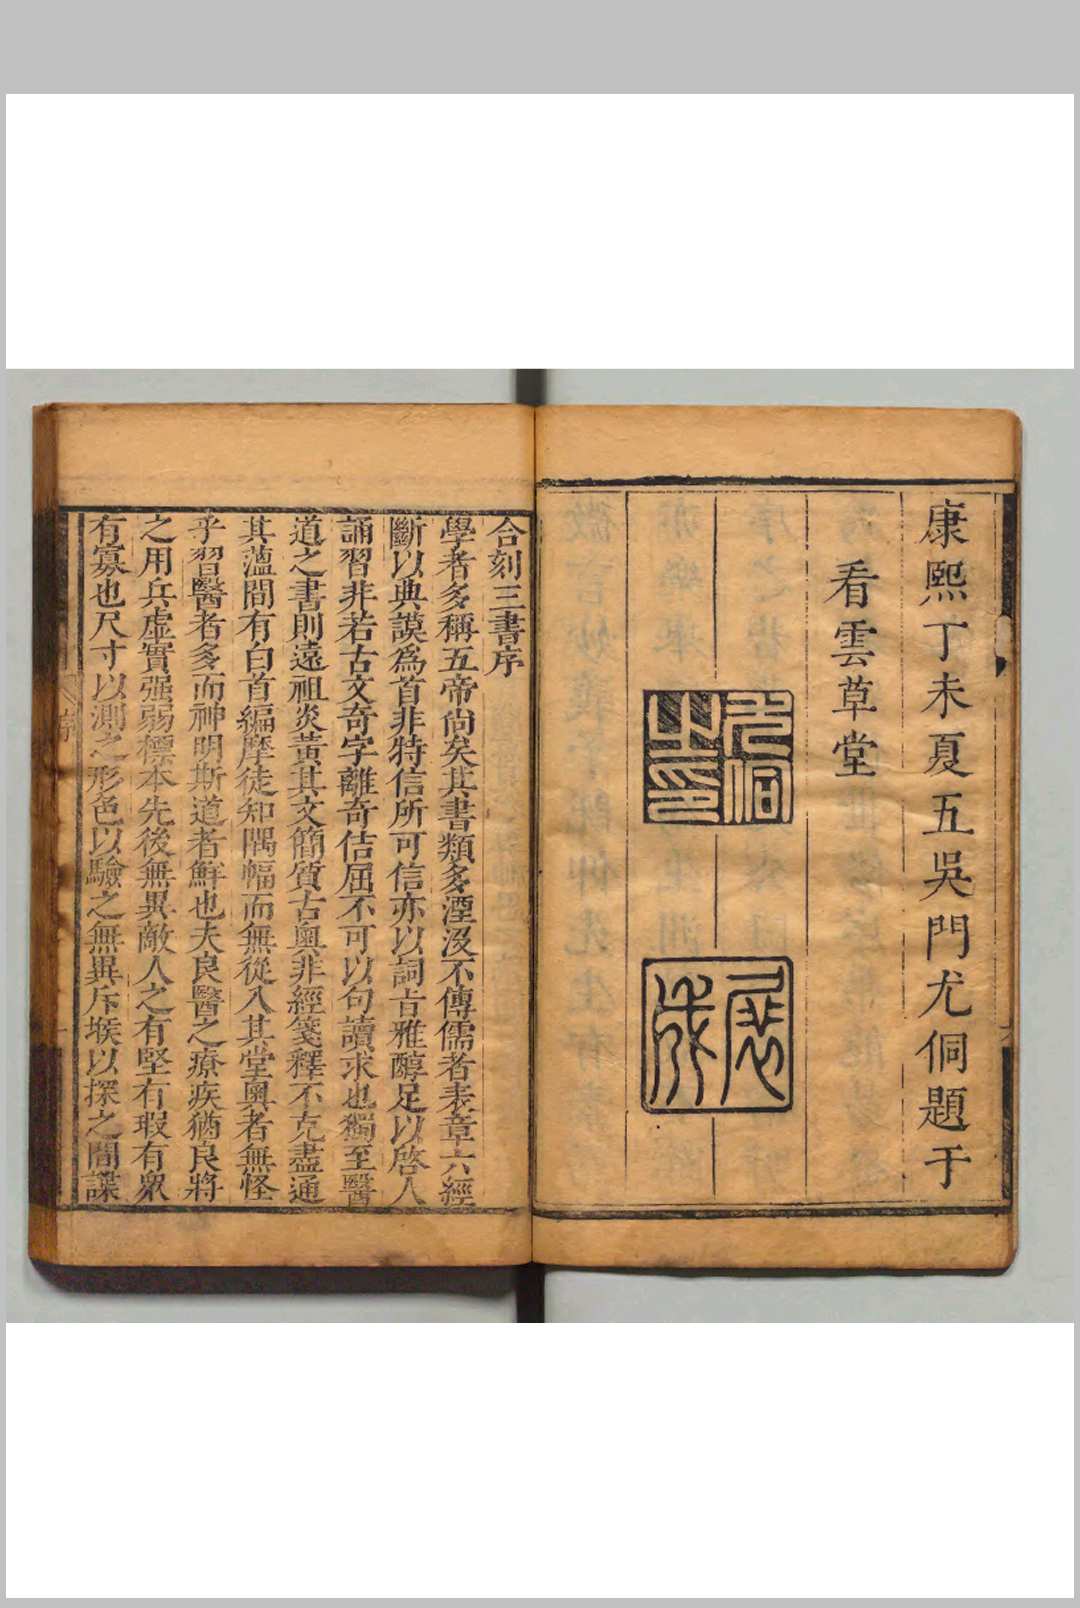 康熙丁未夏五吳門尤侗題于
看雲草堂
尤侗之印
展成
合刻三書序
學者多稱五帝尚矣其書類多湮沒不傳儒者表章六經
斷以典謨為首非特信所可信亦以詞旨雅醇足以啓人
誦習非若古文奇字離奇佶屈不可以句讀求也獨至醫
道之書則遠祖炎黃其文簡質古奧非經箋釋不克盡通
其薀間有白首編摩徒知隅幅而無從入其堂奧者無怪
乎習醫者多而神明斯道者鮮也夫良醫之療疾猶良將
之用兵虛實强弱標本先後無異敵人之有堅有瑕有衆
有寡也尺寸以測之形色以驗之無異斥堠以探之間諜
序